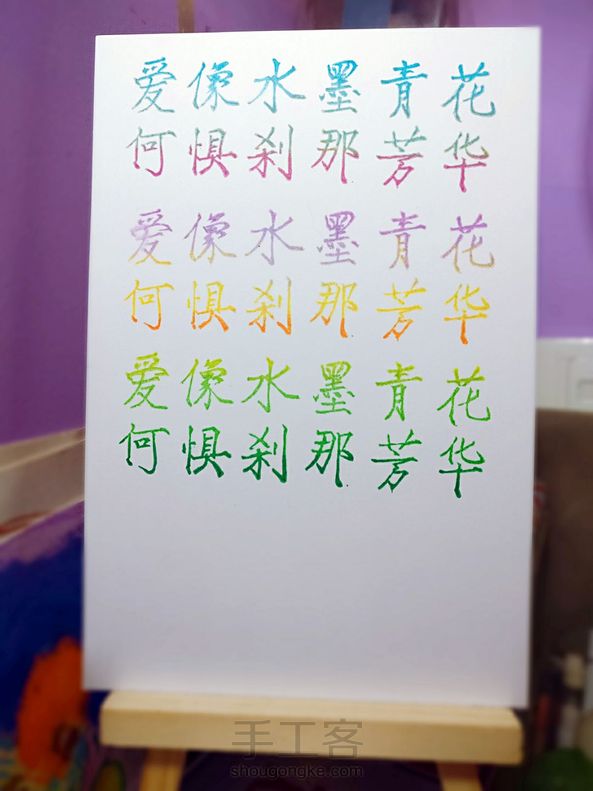 爱像水墨青花
何惧刹那芳华
爱像水墨青花
何惧刹那芳华
爱像水墨青花
何惧刹那芳华
手工客
shougongke.com